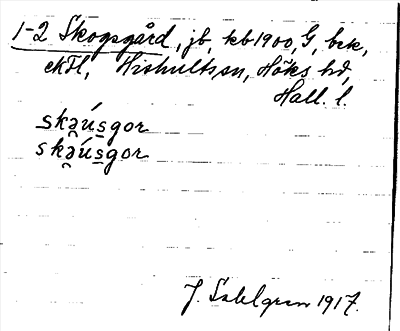 1-2 Skogsgård, jb, kb 1900, G, bek,
ekFl, Hishults sn, Höks hd,
Hall. l.
skə̯úsgor
skə̯úsgor
J. Sahlgren 1917.